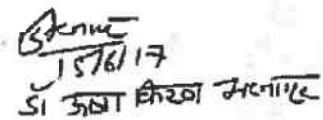 15/6/17
डॉ उषा किरण भटनागर